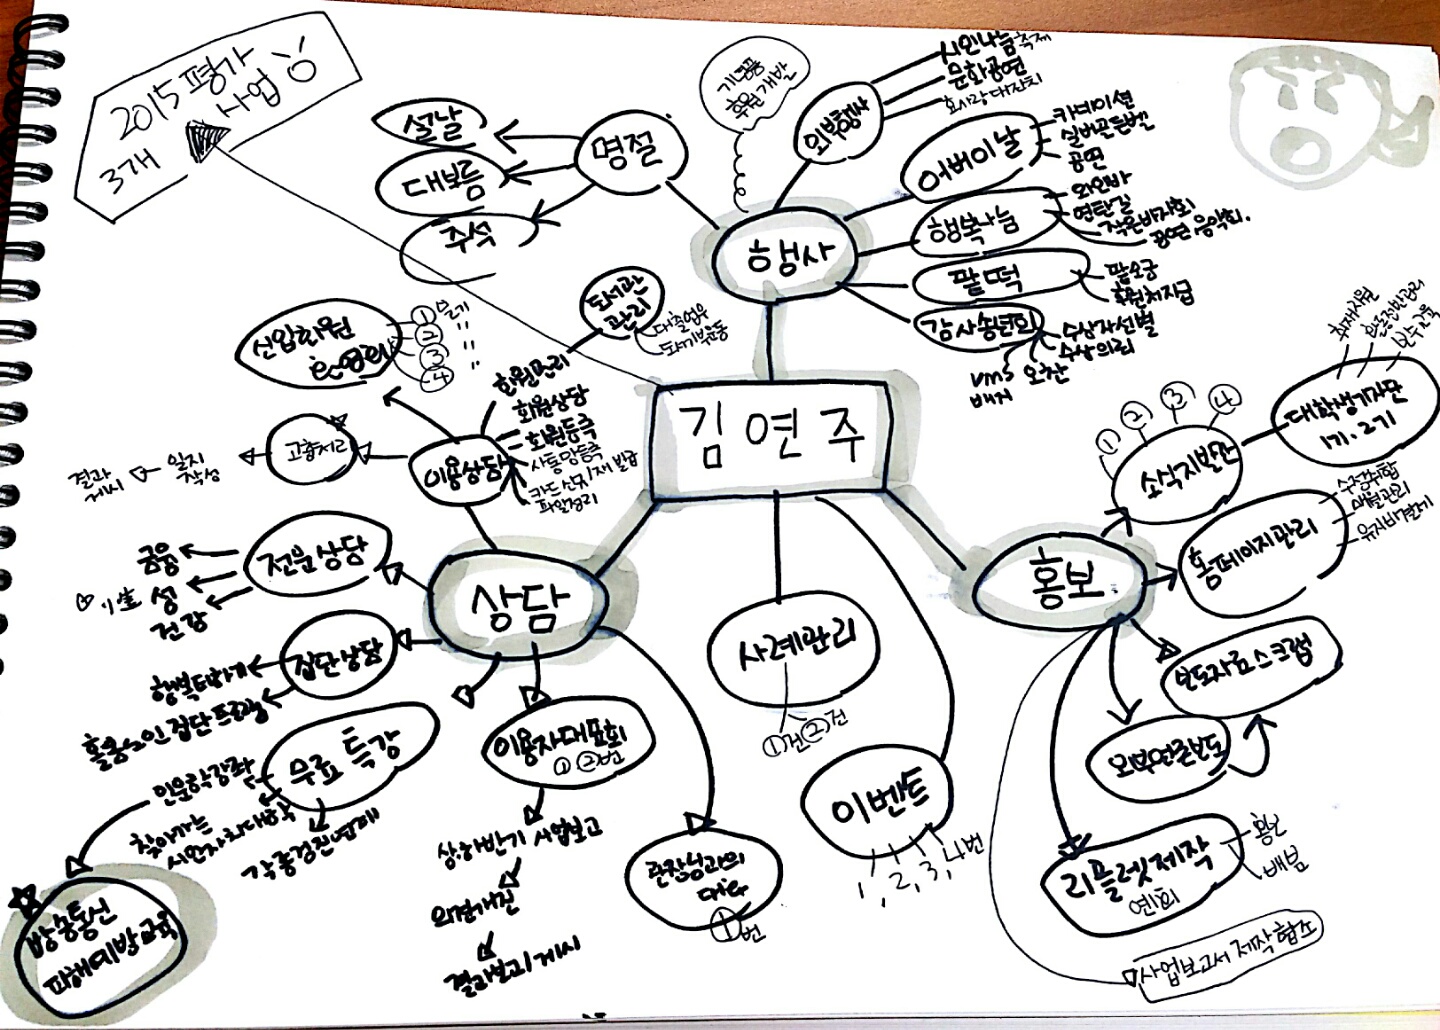 2015 평가
사업
3개
기념품
후원 개발
명절
설날
대보름
추석
행사
외부행사
시민나눔축제
문화공연
효사랑 대잔치
어버이날
카네이션
실버골든벨
공연
행복나눔
와인바
연탄길
작은바자회
공연 음악회.
팥떡
팥소금
후원처지급
감사송년회
수상자선별
수상의뢰
오찬
vms
배지
김연주
도서관
관리
대출업무
도서기부운동
신입회원
①
②
③
④
회원관리
회원상담
회원등록
사통망등록
카드신규/재발급
파일정리
이용상담
고충처리
일지
작성
결과
게시
상담
전문상담
금융
성
건강
집단상담
행복더하기
홀몸노인 집단프로그램
무료 특강
인문학강좌
찾아가는
시민자치대학
방송통신
피해예방교육
이용자대표회
① ②번
상하반기 사업보고
의견개진
결과보고/게시
관장님과의
대화
①번
사례관리
①건 ②건
이벤트
1, 2, 3, 4번
홍보
소식지발간
① ② ③ ④
대학생기자단
1기. 2기
취재지원
보수교육
홈페이지관리
수정취합
매월관리
보도자료스크랩
외부언론보도
리플렛제작
연1회
홍보
배포
사업보고서 제작 협조